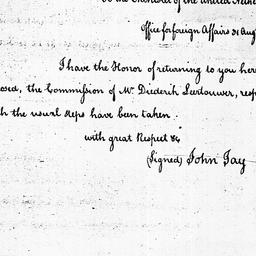 to the Chancellor of the United Nethe
Office for foreign Affairs 31 Aug
I have the Honor of returning to you here
osed, the Commission of Mr. Diederik Leertouwer, resp
h the usual Steps have been taken.
with great Respect &c
(Signed) John Jay